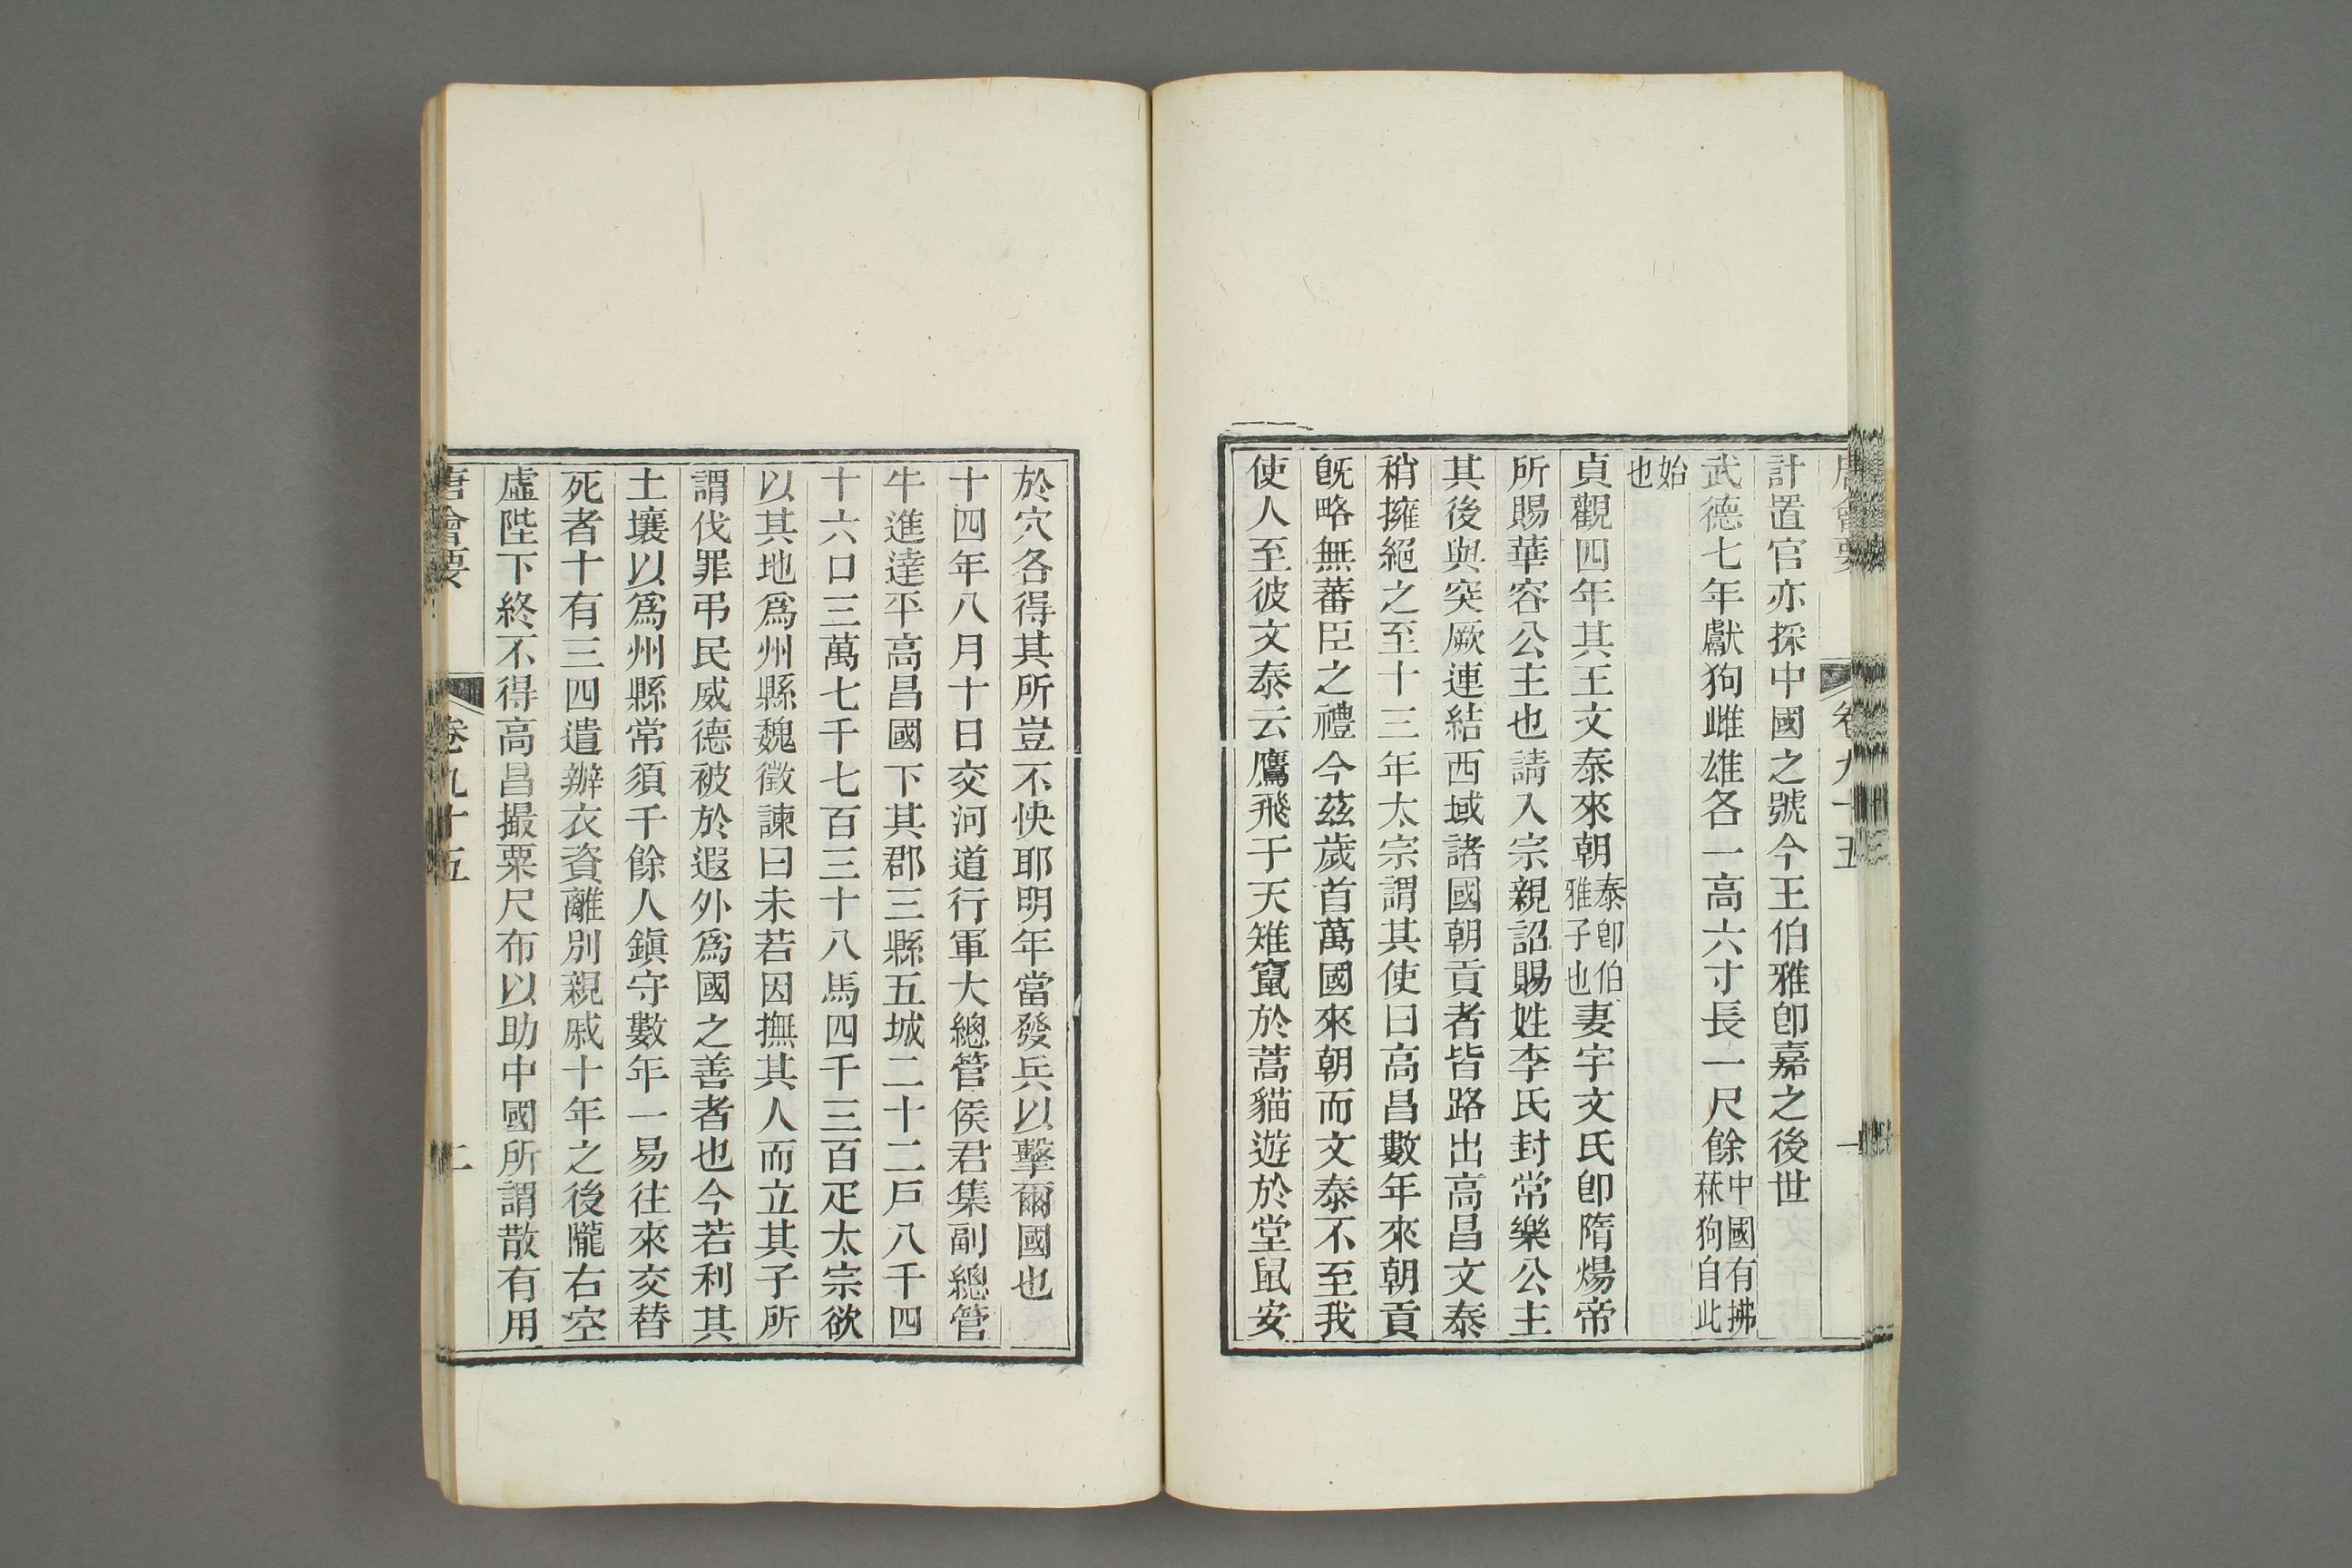 唐會要 卷九十五 一
計置官亦採中國之號今王伯雅卽嘉之後世
武德七年獻狗雌雄各一高六寸長一尺餘中國有拂菻狗自此
始也
貞觀四年其王文泰來朝泰卽伯雅子也妻宇文氏卽隋煬帝
所賜華容公主也請入宗親詔賜姓李氏封常樂公主
其後與突厥連結西域諸國朝貢者皆路出高昌文泰
稍擁絕之至十三年太宗謂其使曰高昌數年來朝貢
旣略無蕃臣之禮今茲歲首萬國來朝而文泰不至我
使人至彼文泰云鷹飛于天雉竄於蒿貓遊於堂鼠安
於穴各得其所豈不快耶明年當發兵以擊爾國也
十四年八月十日交河道行軍大總管侯君集副總管
牛進達平高昌國下其郡三縣五城二十二戶八千四
十六口三萬七千七百三十八馬四千三百疋太宗欲
以其地爲州縣魏徵諫曰未若因撫其人而立其子所
謂伐罪弔民威德被於遐外爲國之善者也今若利其
土壤以爲州縣常須千餘人鎭守數年一易往來交替
死者十有三四遣辦衣資離別親戚十年之後隴右空
虛陛下終不得高昌撮粟尺布以助中國所謂散有用
唐會要 卷九十五 二